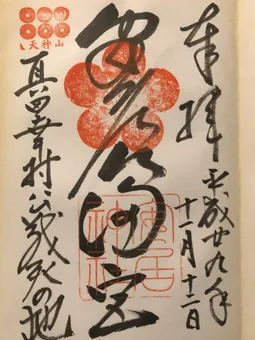 奉拝
平成廿九年
十月十二日
安居神社
天神山
真田幸村公戦死の地
安居
神社